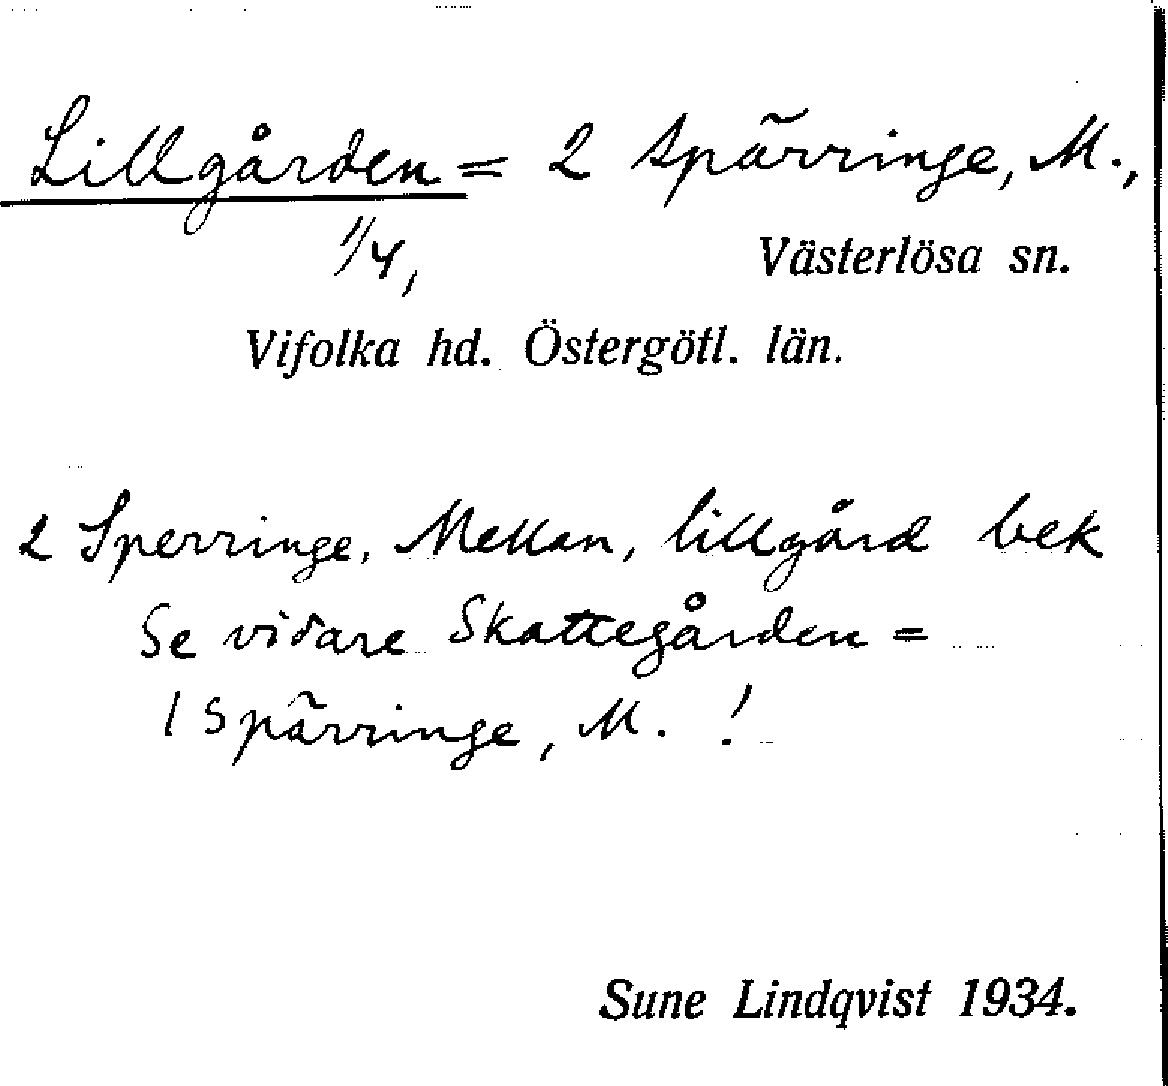 Lillgården = 2 Spärringe, M.,
1/4, Västerlösa sn.
Vifolka hd. Östergötl. län.
2 Sperringe, Mellan, lillgård bek
Se vidare Skattegården =
1 Spärringe, M. !
Sune Lindqvist 1934.